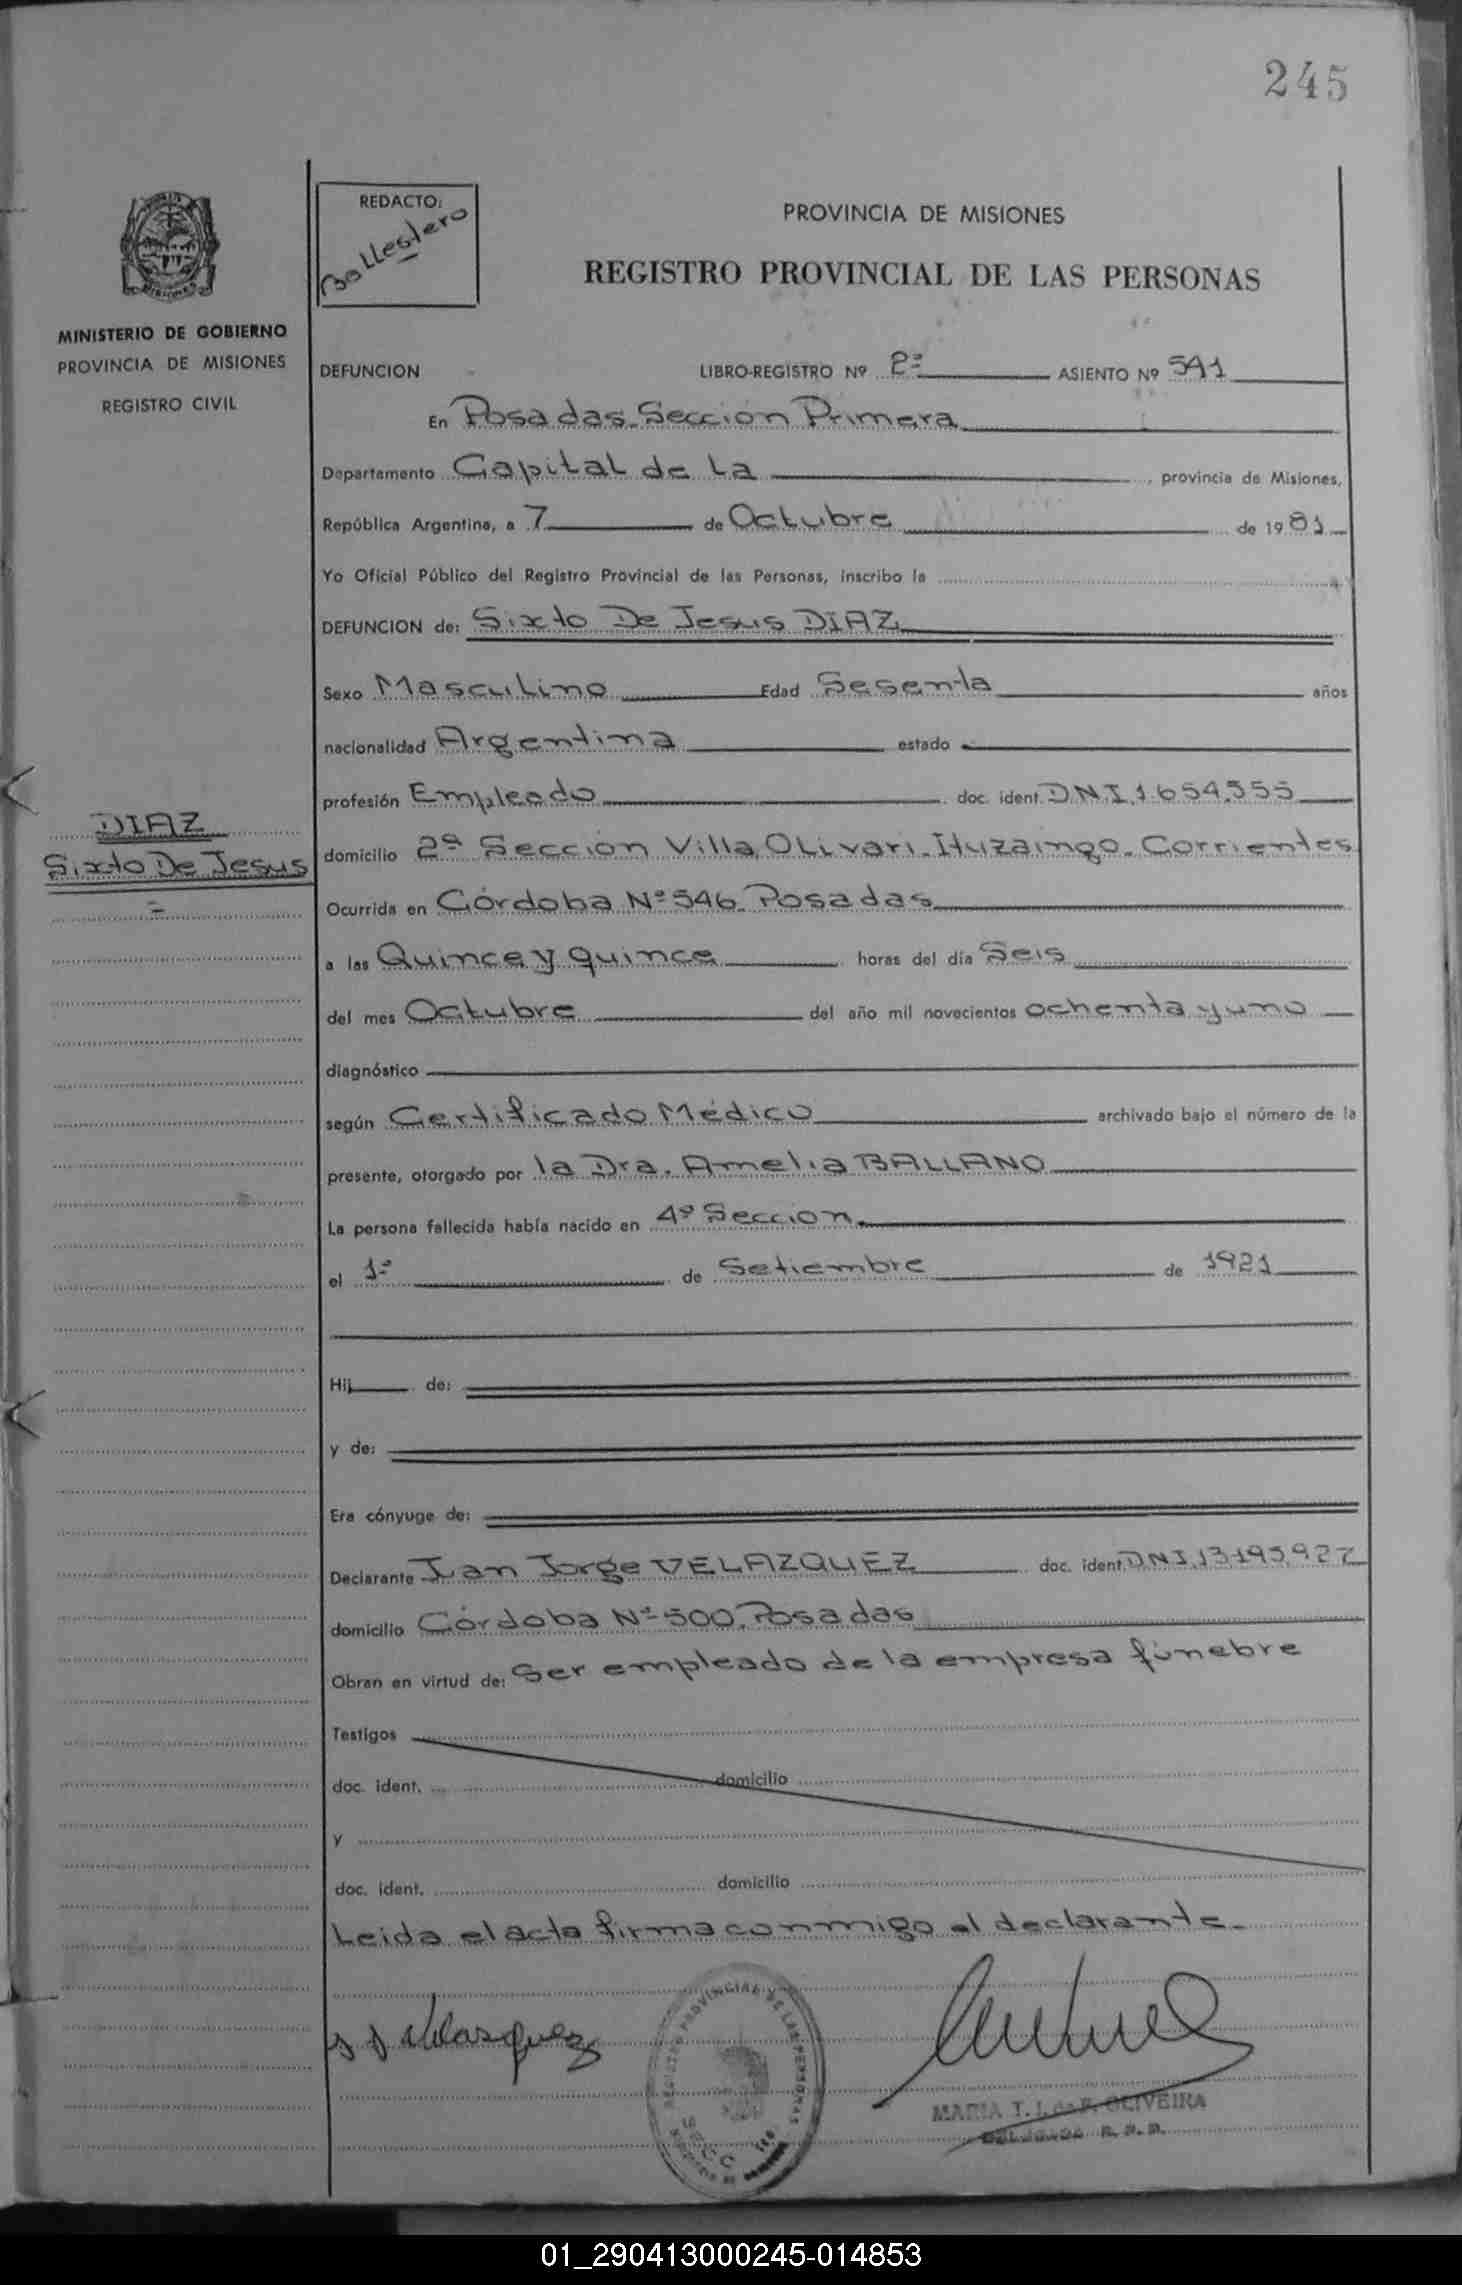 245
REDACTO:
Ballestero
PROVINCIA DE MISIONES
REGISTRO PROVINCIAL DE LAS PERSONAS
MINISTERIO DE GOBIERNO
PROVINCIA DE MISIONES
REGISTRO CIVIL
DEFUNCION LIBRO-REGISTRO Nº 2º ASIENTO Nº 541
En Posadas-Sección Primera
Departamento Capital de La provincia de Misiones,
República Argentina, a 7 de Octubre de 1981
Yo Oficial Público del Registro Provincial de las Personas, inscribo la
DEFUNCION de: Sixto De Jesus DIAZ
Sexo Masculino Edad Sesenta años
nacionalidad Argentina estado
profesión Empleado doc. ident. DNI.1.654.555
DIAZ
Sixto De Jesus
domicilio 2ª Sección Villa Olivari-Ituzaingo-Corrientes
Ocurrida en Córdoba Nº 546-Posadas
a las Quince y quince horas del día Seis
del mes Octubre del año mil novecientos ochenta y uno
diagnóstico
según Certificado Médico archivado bajo el número de la
presente, otorgado por la Dra. Amelia BALLANO
La persona fallecida había nacido en 4º Sección
el 1º de Setiembre de 1921
Hij de:
y de:
Era cónyuge de:
Declarante Juan Jorge VELAZQUEZ doc. ident. DNI.13.195.927
domicilio Córdoba Nº 500-Posadas
Obran en virtud de: Ser empleado de la empresa fúnebre
Testigos
doc. ident. domicilio
y
doc. ident. domicilio
Leida el acta firma conmigo el declarante-
REGISTRO PROVINCIAL DE LAS PERSONAS
MARIA T. J. de F. OLIVEIRA
01_290413000245-014853